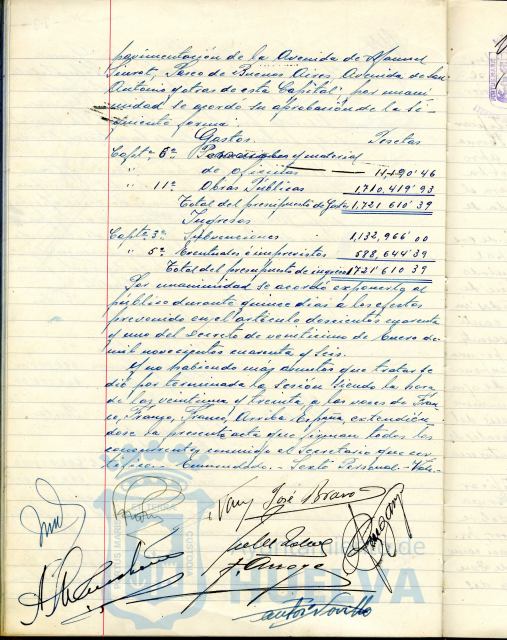 pavimentación de la Avenida de Manuel
Siurot, Paseo de Buenos Aires, Avenida de San
Antonio y otras de esta Capital", por unani
midad se acordó su aprobación de la si-
guiente forma:
Gastos. Pesetas
Capítº 6º Personal y material
de oficinas 11,190'46
" 11º Obras Públicas 1,710,419'93
Total del presupuesto de Gastos 1,721,610'39
Ingresos
Capítº 3º Subvenciones 1,132,966'00
" 5º Eventuales é imprevistos 588,644'39
Total del presupuesto de ingresos 1721'610'39
Por unanimidad se acordó exponerlo al
público durante quince días á los efectos
prevenido en el artículo doscientos cuarenta
y uno del decreto de veinticinco de Enero de
mil novecientos cuarenta y seis.
Y no habiendo más asuntos que tratar se
dió por terminada la sesión siendo la hora
de las veintiuna y treinta, a las voces de Fran-
co, Franco, Franco, Arriba España, extendién-
dose la presente acta que firman todos los
concurrentes conmigo el Secretario que cer-
tifico.- Enmendado.- Sexto Personal.- Vale-
José Bravo
HUELVA